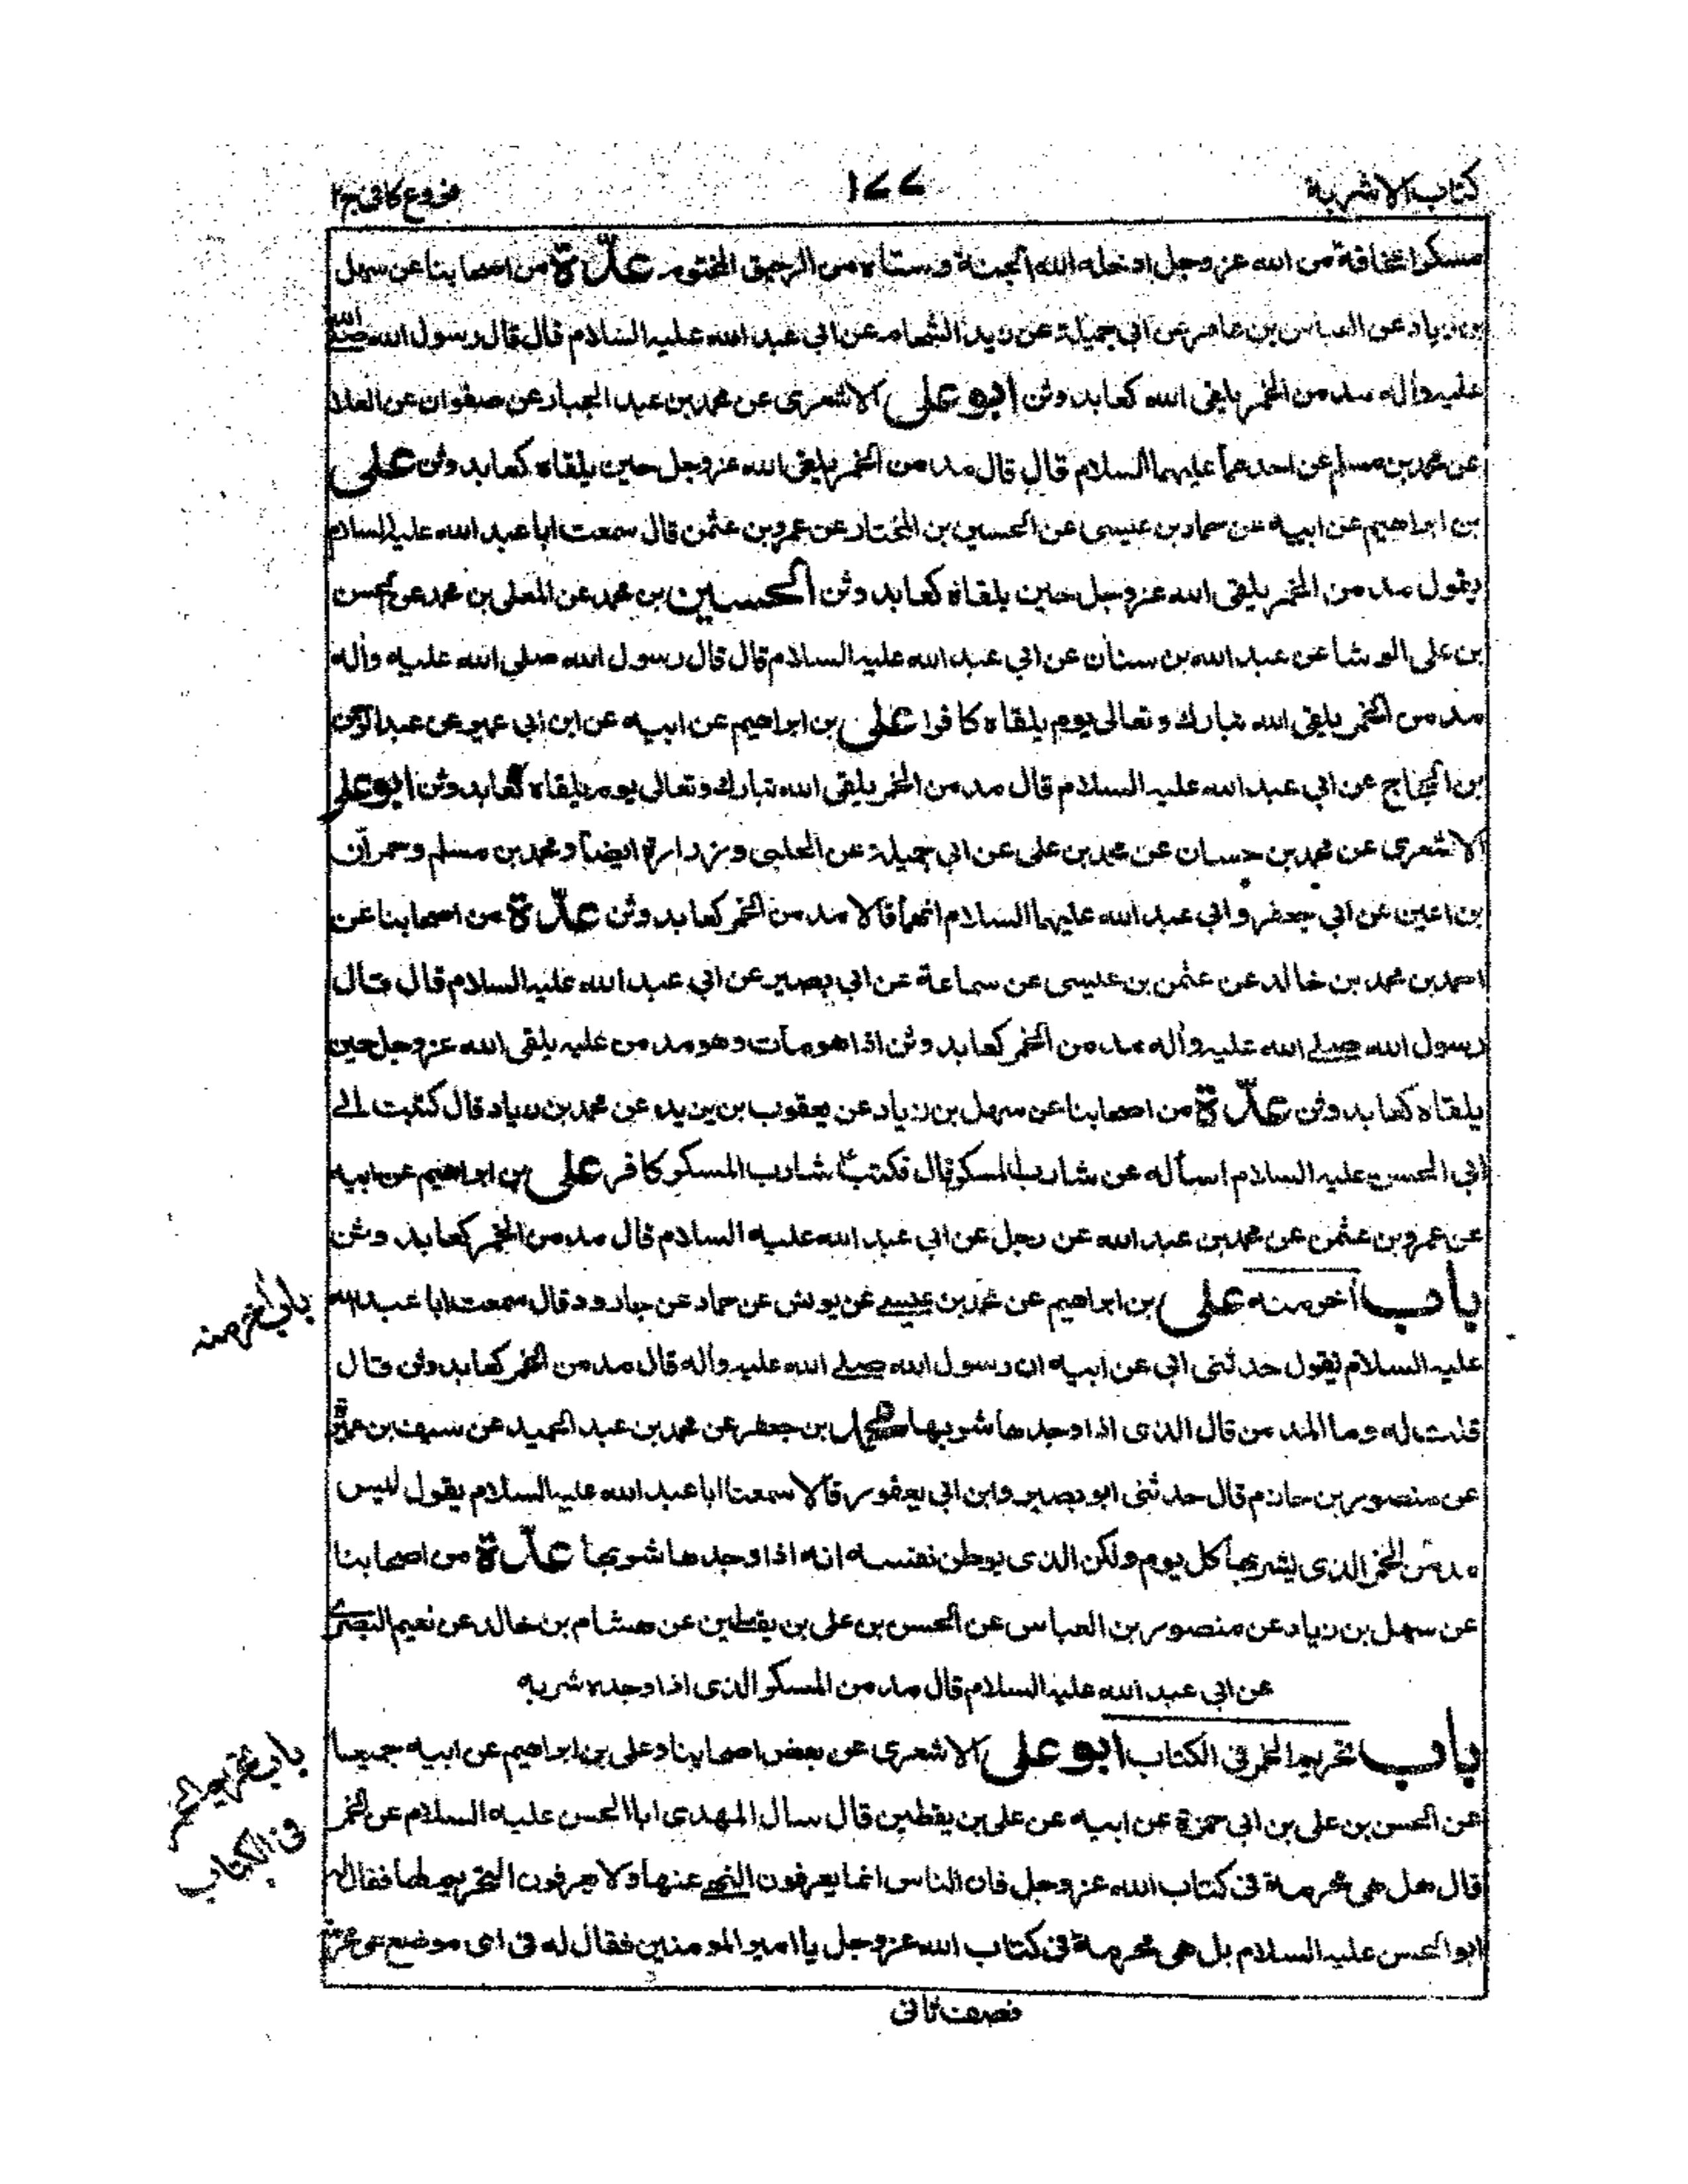 كتاب الاشربة
١٧٧
فروع كافي ج٢
مسكرا مخافة من الله عز وجل ادخله الله الجنة وسقاه من الرحيق المختوم عدّة من اصحابنا عن سهل
بن زياد عن العباس بن عامر عن ابي جميلة عن زيد الشحام عن ابي عبد الله عليه السلام قال قال رسول الله صلى الله
عليه وآله مدمن الخمر يلقى الله كعابد وثن ابو على الاشعرى عن محمد بن عبد الجبار عن صفوان عن العلا
عن محمد بن مسلم عن احدهما عليهما السلام قال قال مدمن الخمر يلقى الله عز وجل حين يلقاه كعابد وثن على
بن ابراهيم عن ابيه عن حماد بن عيسى عن الحسين بن المختار عن عمرو بن عثمن قال سمعت ابا عبد الله عليه السلام
يقول مدمن الخمر يلقى الله عز وجل حين يلقاه كعابد وثن الحسين بن محمد عن المعلى بن محمد عن الحسن
بن على الوشا عن عبد الله بن سنان عن ابي عبد الله عليه السلام قال قال رسول الله صلى الله عليه وآله
مدمن الخمر يلقى الله تبارك وتعالى يوم يلقاه كافرا على بن ابراهيم عن ابيه عن ابن ابي عمير عن عبد الرحمن
بن الحجاج عن ابي عبد الله عليه السلام قال مدمن الخمر يلقى الله تبارك وتعالى يوم يلقاه كعابد وثن ابو على
الاشعرى عن محمد بن حسان عن محمد بن على عن ابي جميلة عن الحلبى وزرارة ايضا ومحمد بن مسلم وحمران
بن اعين عن ابي جعفر وابي عبد الله عليهما السلام انهما قالا مدمن الخمر كعابد وثن عدّة من اصحابنا عن
احمد بن محمد بن خالد عن عثمن بن عيسى عن سماعة عن ابي بصير عن ابي عبد الله عليه السلام قال قال
رسول الله صلى الله عليه وآله مدمن الخمر كعابد وثن اذا هو مات وهو مدمن عليه يلقى الله عز وجل حين
يلقاه كعابد وثن عدّة من اصحابنا عن سهل بن زياد عن يعقوب بن يزيد عن محمد بن زياد قال كتبت الى
ابي الحسن عليه السلام اسأله عن شارب المسكر قال فكتب شارب المسكر كافر على بن ابراهيم عن ابيه
عن عمرو بن عثمن عن محمد بن عبد الله عن رجل عن ابي عبد الله عليه السلام قال مدمن الخمر كعابد وثن
باب آخر منه على بن ابراهيم عن محمد بن عيسى عن يونس عن حماد عن جارود قال سمعت ابا عبد الله
باب آخر منه
عليه السلام يقول حدثنى ابي عن ابيه ان رسول الله صلى الله عليه وآله قال مدمن الخمر كعابد وثن قال
قلت له وما المدمن قال الذى اذا وجدها شربها محمد بن جعفر عن محمد بن عبد الحميد عن سيف بن عميرة
عن منصور بن حازم قال حدثنى ابو بصير وابن ابي يعفور قالا سمعنا ابا عبد الله عليه السلام يقول ليس
مدمن الخمر الذى يشربها كل يوم ولكن الذى يوطن نفسه انه اذا وجدها شربها عدّة من اصحابنا
عن سهل بن زياد عن منصور بن العباس عن الحسن بن على بن يقطين عن هشام بن خالد عن نعيم البصرى
عن ابي عبد الله عليه السلام قال مدمن المسكر الذى اذا وجده شربه
باب تحريم الخمر في الكتاب ابو على الاشعرى عن بعض اصحابنا وعلى بن ابراهيم عن ابيه جميعا
باب تحريم الخمر
في الكتاب
عن الحسن بن على بن ابي حمزة عن ابيه عن على بن يقطين قال سال المهدى ابا الحسن عليه السلام عن الخمر
قال هل هى محرمة في كتاب الله عز وجل فان الناس انما يعرفون النهى عنها ولا يعرفون التحريم لها فقال له
ابو الحسن عليه السلام بل هى محرمة في كتاب الله عز وجل يا امير المومنين فقال له في اى موضع هى محرمة
نصف ثاني